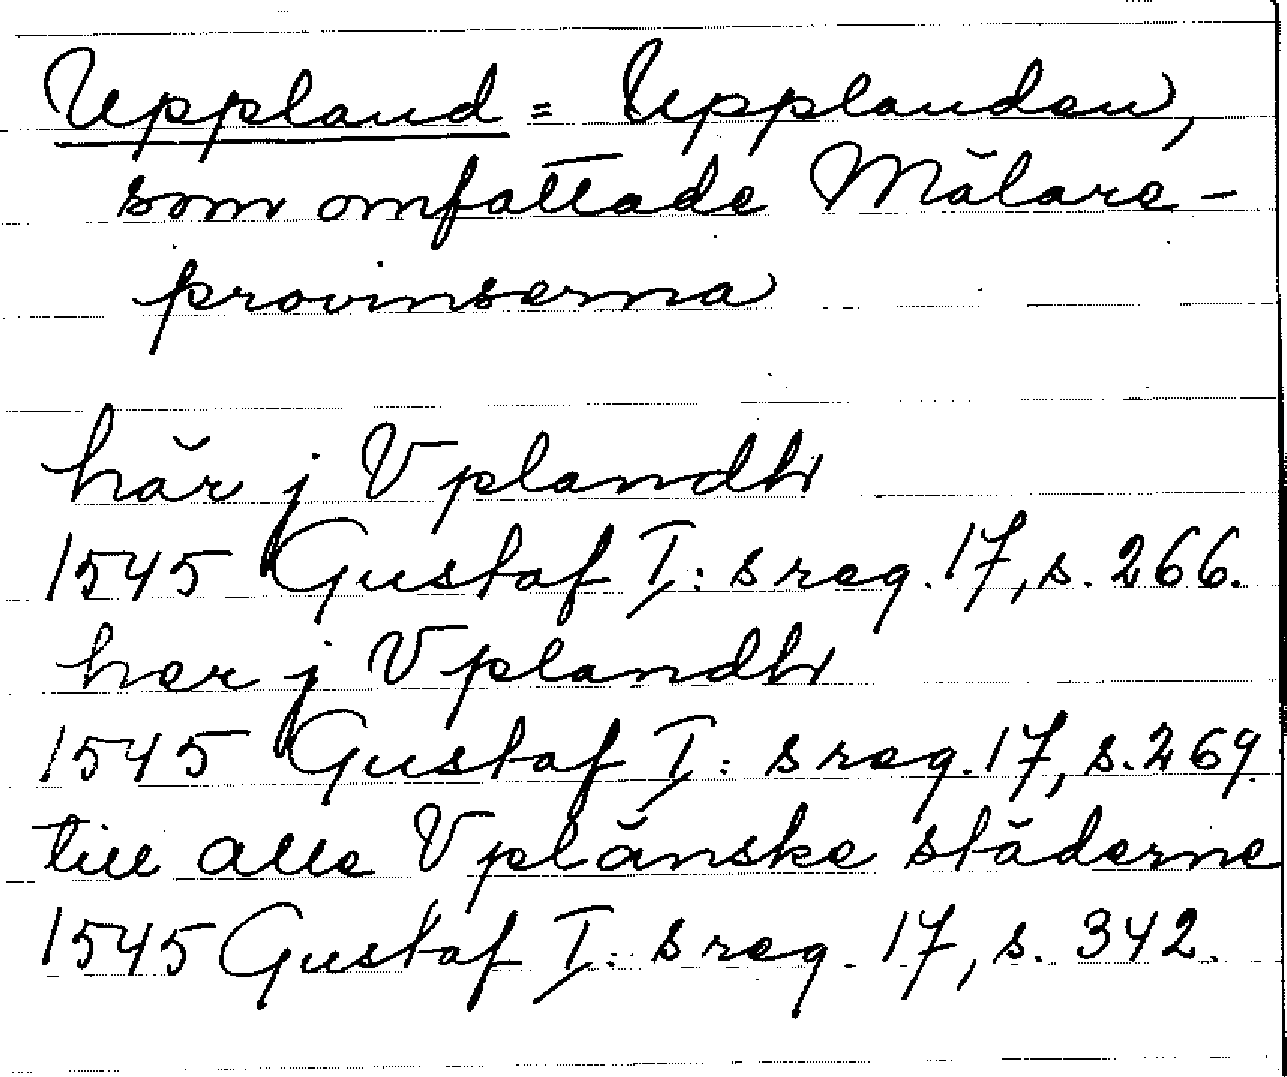 Uppland = Upplanden,
som omfattade Mälare-
provinserna
här j Vplandh
1545 Gustaf I:s reg. 17, s. 266.
her j Vplandh
1545 Gustaf I:s reg. 17, s. 269.
till alle Vplänske städerne
1545 Gustaf I:s reg. 17, s. 342.